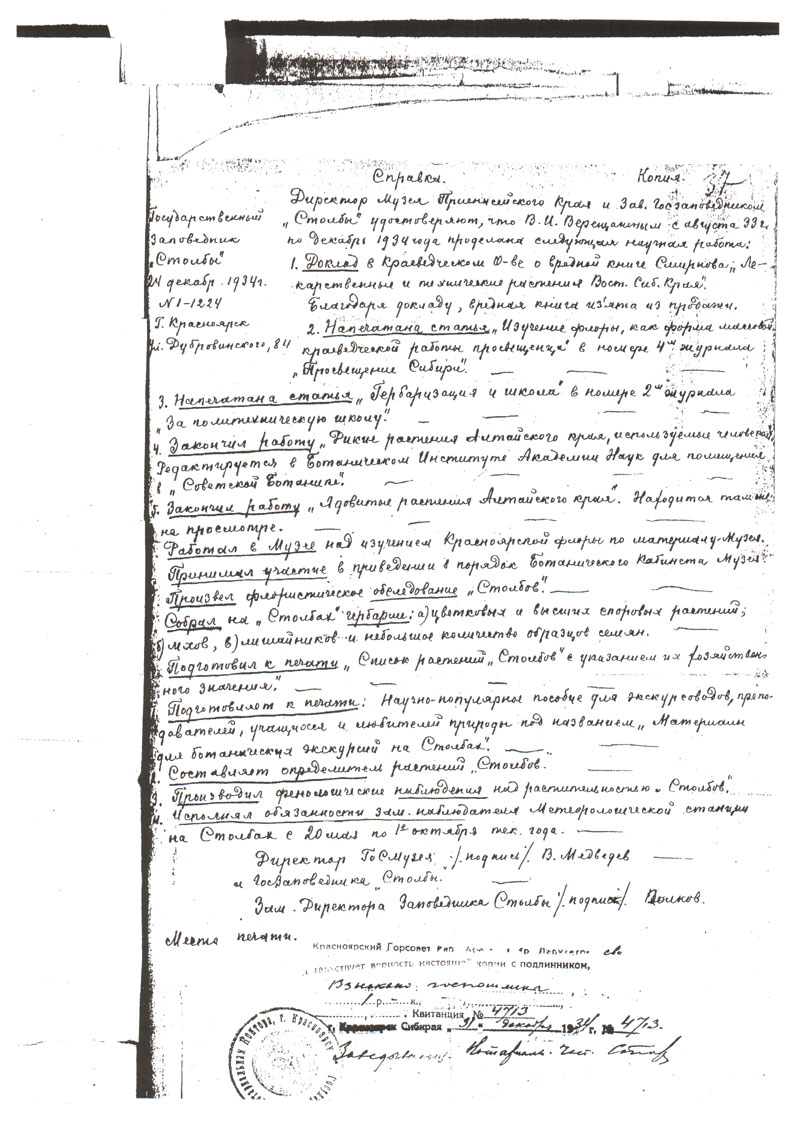 Справка. Копия. 37
Государственный
Заповедник
„Столбы"
24 декабр. 1934г.
N 1-1224
Г. Красноярск
Ул. Дубровинского, 84
Директор Музея Приенисейского Края и Зав. Госзаповедником
„Столбы" удостоверяют, что В.И. Верещагиным с августа 33 г.
по декабрь 1934 года проделана следующая научная работа:
1. Доклад в Краеведческом О-ве о вредной книге Смирнова „Ле-
карственные и технические растения Вост. Сиб. Края".
Благодаря докладу, вредная книга из'ята из продажи.
2. Напечатана статья „Изучение флоры, как форма массовой
краеведческой работы просвещенца" в номере 4м журнала
„Просвещение Сибири".
3. Напечатана статья „Гербаризация и школа" в номере 2м журнала
„За политехническую школу".
4. Закончил работу „Дикие растения Алтайского края, используемые человеком,
Редактируется в Ботаническом Институте Академии Наук для помещения
в „Советской Ботанике".
5. Закончил работу „Ядовитые растения Алтайского края". Находится там же
на просмотре.
Работал в Музее над изучением Красноярской флоры по материалу Музея.
Принимал участие в приведении в порядок Ботанического Кабинета Музея.
Произвел флористическое обследование „Столбов".
Собрал на „Столбах" гербарии: а) цветковых и высших споровых растений;
б) мхов, в) лишайников и небольшое количество образцов семян.
Подготовил к печати „Список растений „Столбов" с указанием их хозяйствен-
ного значения".
Подготовляет к печати: Научно-популярное пособие для экскурсоводов, препо-
давателей, учащихся и любителей природы под названием „Материалы
для ботанических экскурсий на Столбах".
2. Составляет определитель растений „Столбов.
3. Производил фенологические наблюдения над растительностью „Столбов".
4. Исполнял обязанности зам. наблюдателя Метеорологической станции
на Столбах с 20 мая по 1е октября тек. года.
Директор ГосМузея /. подпись/. В. Медведев
и ГосЗаповедника „Столбы.
Зам. Директора Заповедника Столбы /. подпись/. Волков.
Место печати.
Красноярский Горсовет
верность настоящей копии с подлинником,
Взыскано госпошлина
1 р. к.,
Квитанция № 4713
г. Красноярск Сибкрая „31" декабря 1934 г. № 4713.
Заведывающ. Нотариальн. Част.
Контора, г. Красноярск